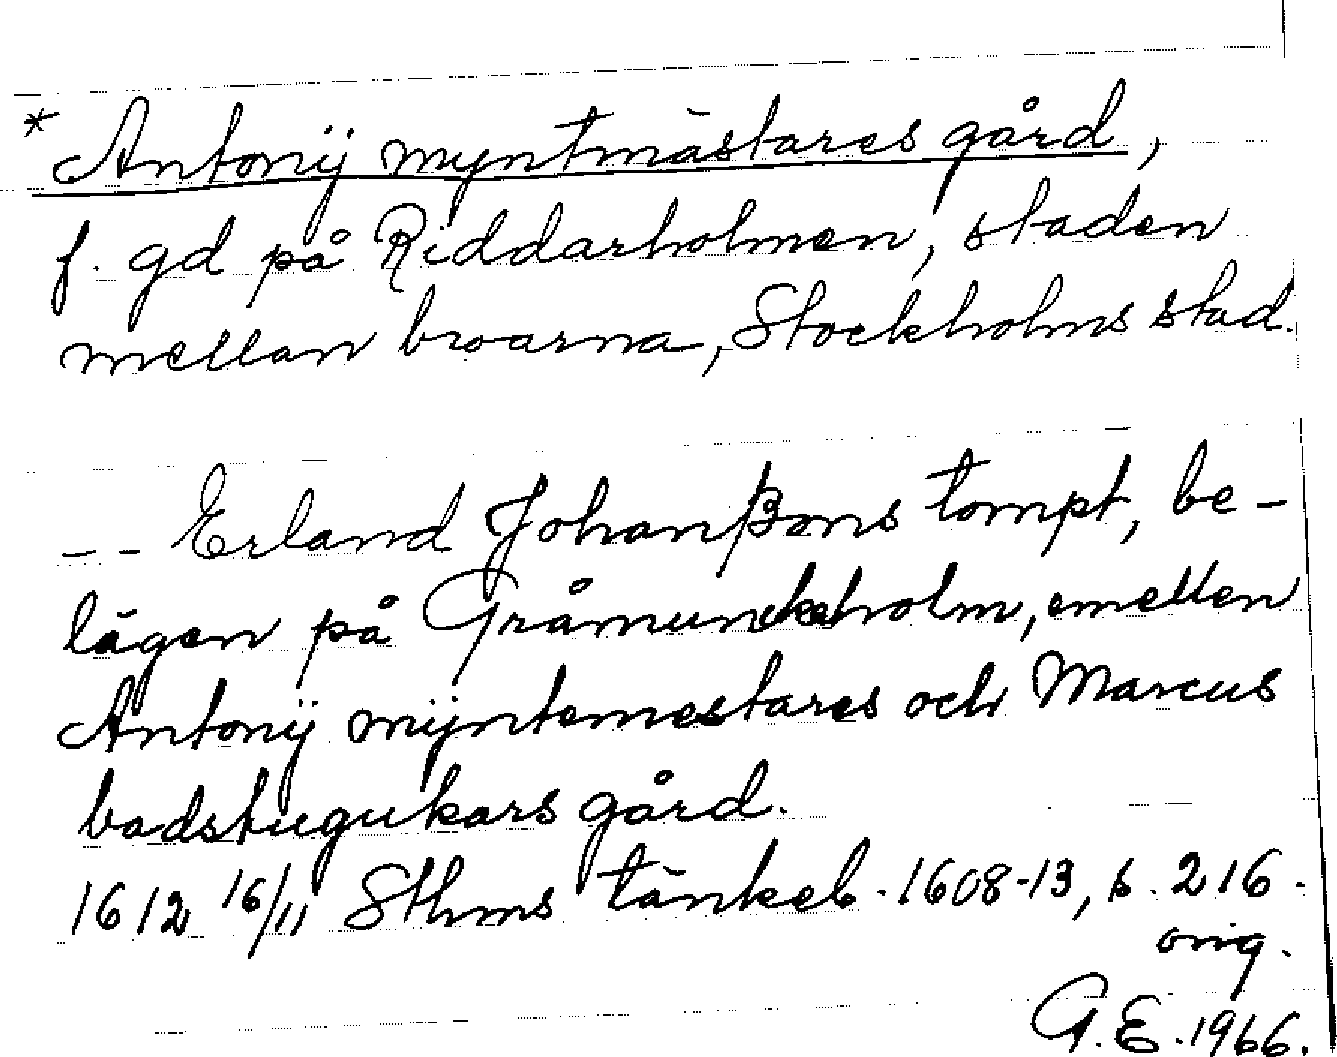 * Antonÿ myntmästares gård,
f. gd på Riddarholmen, staden
mellan broarna, Stockholms stad.
-- Erland Johanßons tompt, be-
lägen på Gråmunckeholm, emellen
Antonÿ mÿntemestares och Marcus
badstugukars gård.
1612 16/11 Sthms tänkeb. 1608-13, s. 216.
orig.
G.E. 1966.